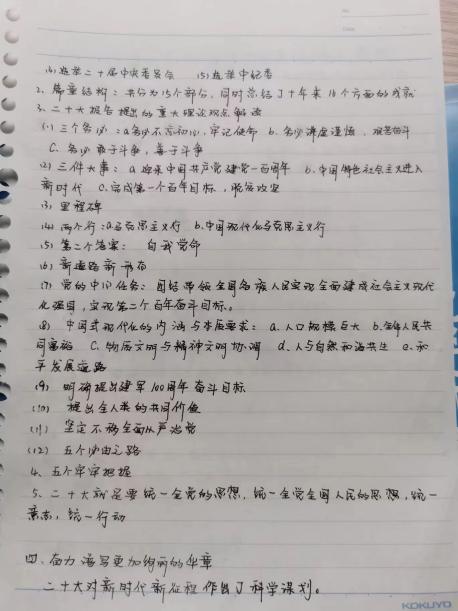 No.
Date
(4) 选举二十届中央委员会 (5) 选举中纪委
2. 篇章结构：共分为15个部分，同时总结了十年来16个方面的成就
3. 二十大报告提出的重大理论观点解读
(1) 三个务必：a. 务必不忘初心，牢记使命 b. 务必谦虚谨慎，艰苦奋斗
C. 务必敢于斗争，善于斗争
(2) 三件大事：a. 迎来中国共产党建党一百周年 b. 中国特色社会主义进入
新时代 C. 完成第一个百年目标，脱贫攻坚
(3) 里程碑
(4) 两个行：a. 马克思主义行 b. 中国现代化马克思主义行
(5) 第二个答案：自我革命
(6) 新道路新形态
(7) 党的中心任务：团结带领全国各族人民实现全面建成社会主义现代
化强国，实现第二个百年奋斗目标。
(8) 中国式现代化的内涵与本质要求：a. 人口规模巨大 b. 全体人民共
同富裕 C. 物质文明与精神文明协调 d. 人与自然和谐共生 e. 和
平发展道路
(9) 明确提出建军100周年奋斗目标
(10) 提出全人类的共同价值
(11) 坚定不移全面从严治党
(12) 五个必由之路
4. 五个牢牢把握
5. 二十大就是要统一全党的思想，统一全党全国人民的思想，统一
意志，统一行动
四. 奋力谱写更加绚丽的华章
二十大对新时代新征程作出了科学谋划。
KOKUYO